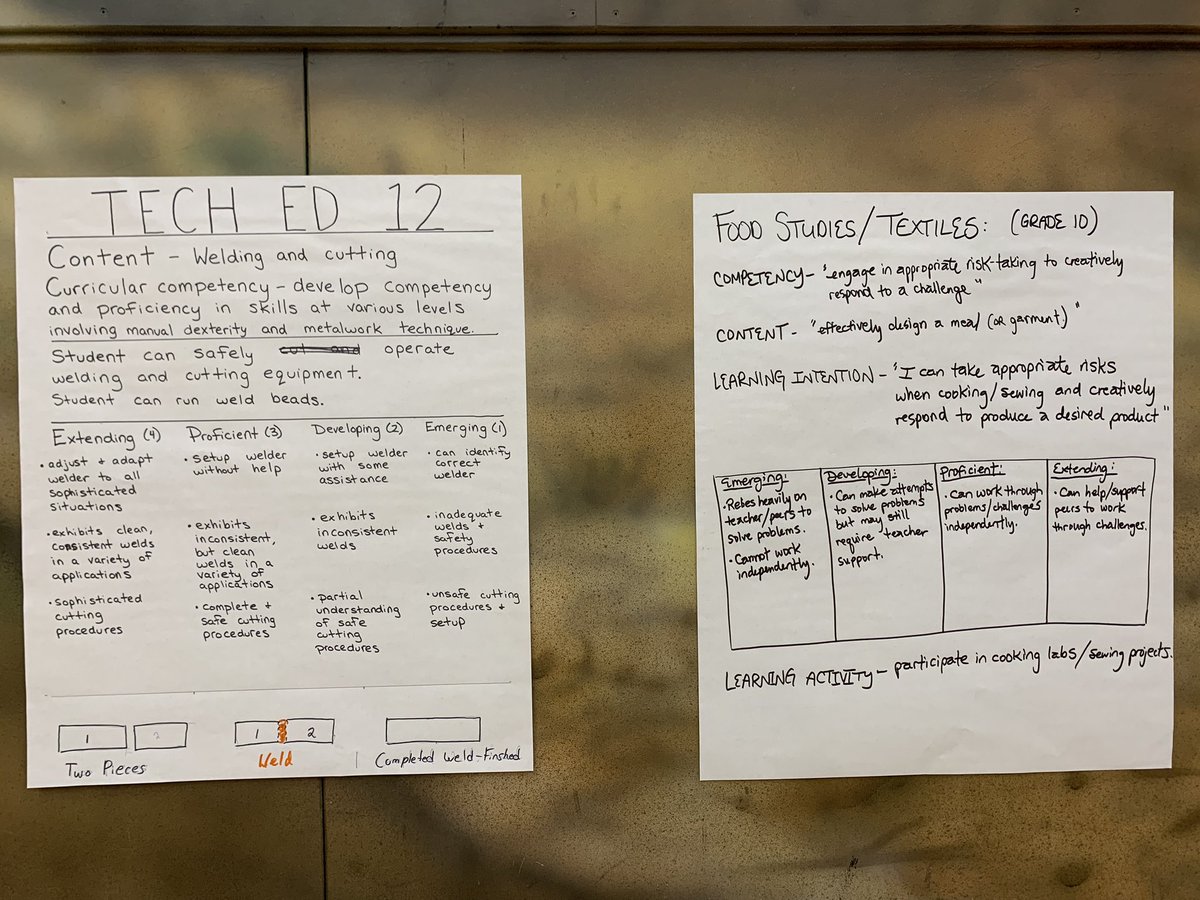 TECH ED 12
Content - Welding and cutting
Curricular competency - develop competency
and proficiency in skills at various levels
involving manual dexterity and metalwork technique.
Student can safely cut and operate
welding and cutting equipment.
Student can run weld beads.
Extending (4)
• adjust + adapt
welder to all
sophisticated
situations
• exhibits clean,
consistent welds
in a variety of
applications
• sophisticated
cutting
procedures
Proficient (3)
• setup welder
without help
• exhibits
inconsistent,
but clean
welds in a
variety of
applications
• complete +
safe cutting
procedures
Developing (2)
• setup welder
with some
assistance
• exhibits
inconsistent
welds
• partial
understanding
of safe
cutting
procedures
Emerging (1)
• can identify
correct
welder
• inadequate
welds +
safety
procedures
• unsafe cutting
procedures +
setup
1 2
Two Pieces
1 2
Weld
Completed Weld-Finshed
FOOD STUDIES/TEXTILES: (GRADE 10)
COMPETENCY- "engage in appropriate risk-taking to creatively
respond to a challenge"
CONTENT - "effectively design a meal (OR garment)"
LEARNING INTENTION - "I can take appropriate risks
when cooking/sewing and creatively
respond to produce a desired product"
Emerging:
• Relies heavily on
teacher/peers to
solve problems.
• Cannot work
independently.
Developing:
• Can make attempts
to solve problems
but may still
require teacher
support.
Proficient:
• Can work through
problems/challenges
independently.
Extending:
• Can help/support
peers to work
through challenges.
LEARNING ACTIVITY - participate in cooking labs/sewing projects.